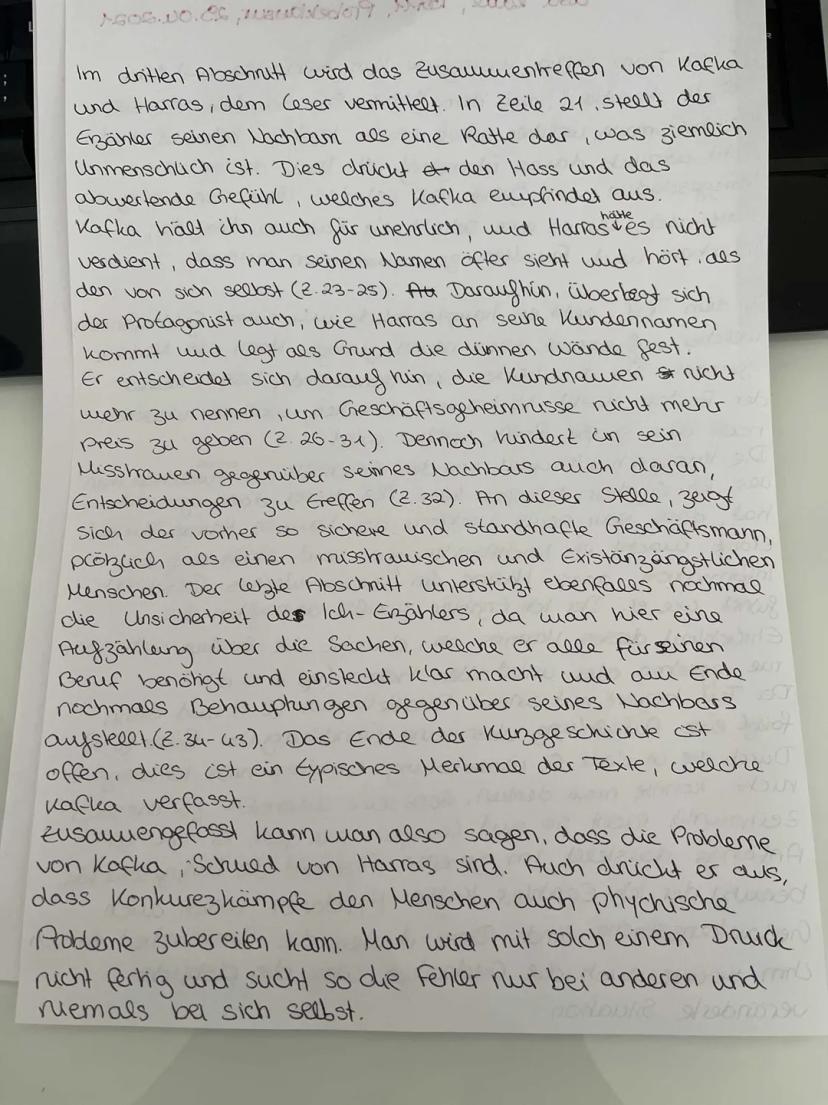 Im dritten Abschnitt wird das Zusammentreffen von Kafka
und Harras, dem Leser vermittelt. In Zeile 21, stellt der
Erzähler seinen Nachbarn als eine Ratte dar, was ziemlich
Unmenschlich ist. Dies drückt den Hass und das
abwertende Gefühl, welches Kafka empfindet aus.
Kafka hält ihn auch für unehrlich, und Harras hätte es nicht
verdient, dass man seinen Namen öfter sieht und hört, als
den von sich selbst (Z. 23-25). Daraufhin, überlegt sich
der Protagonist auch, wie Harras an seine Kundennamen
kommt und legt als Grund die dünnen Wände fest.
Er entscheidet sich darauf hin, die Kundnamen nicht
mehr zu nennen, um Geschäftsgeheimnisse nicht mehr
Preis zu geben (Z. 26-31). Dennoch hindert in sein
Misstrauen gegenüber seines Nachbars auch daran,
Entscheidungen zu treffen (Z. 32). An dieser Stelle, zeigt
sich der vorher so sichere und standhafte Geschäftsmann,
plötzlich als einen misstrauischen und Existänzängstlichen
Menschen. Der letzte Abschnitt unterstützt ebenfalls nochmal
die Unsicherheit des Ich-Erzählers, da man hier eine
Aufzählung über die Sachen, welche er alle für seinen
Beruf benötigt und einsteckt klar macht und am Ende
nochmals Behauptungen gegenüber seines Nachbars
aufstellt. (Z. 34-43). Das Ende der Kurzgeschichte ist
offen, dies ist ein typisches Merkmal der Texte, welche
Kafka verfasst.
Zusammengefasst kann man also sagen, dass die Probleme
von Kafka, Schuld von Harras sind. Auch drückt er aus,
dass Konkurezkämpfe den Menschen auch phychische
Probleme zubereiten kann. Man wird mit solch einem Druck
nicht fertig und sucht so die Fehler nur bei anderen und
niemals bei sich selbst.